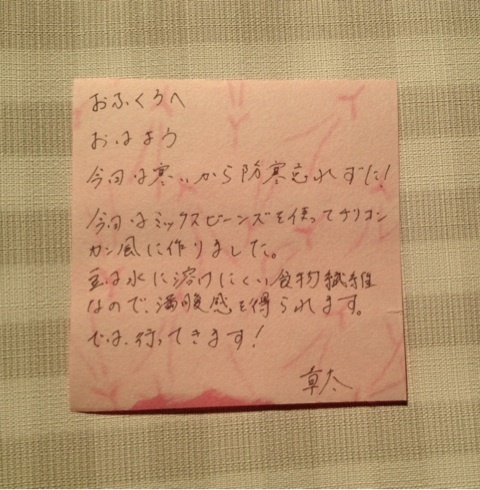 おふくろへ
おはよう
今日は寒いから防寒忘れずに!
今日はミックスビーンズを使ってチリコン
カン風に作りました。
豆は水に溶けにくい食物繊維
なので、満腹感を得られます。
では、行ってきます!
章太